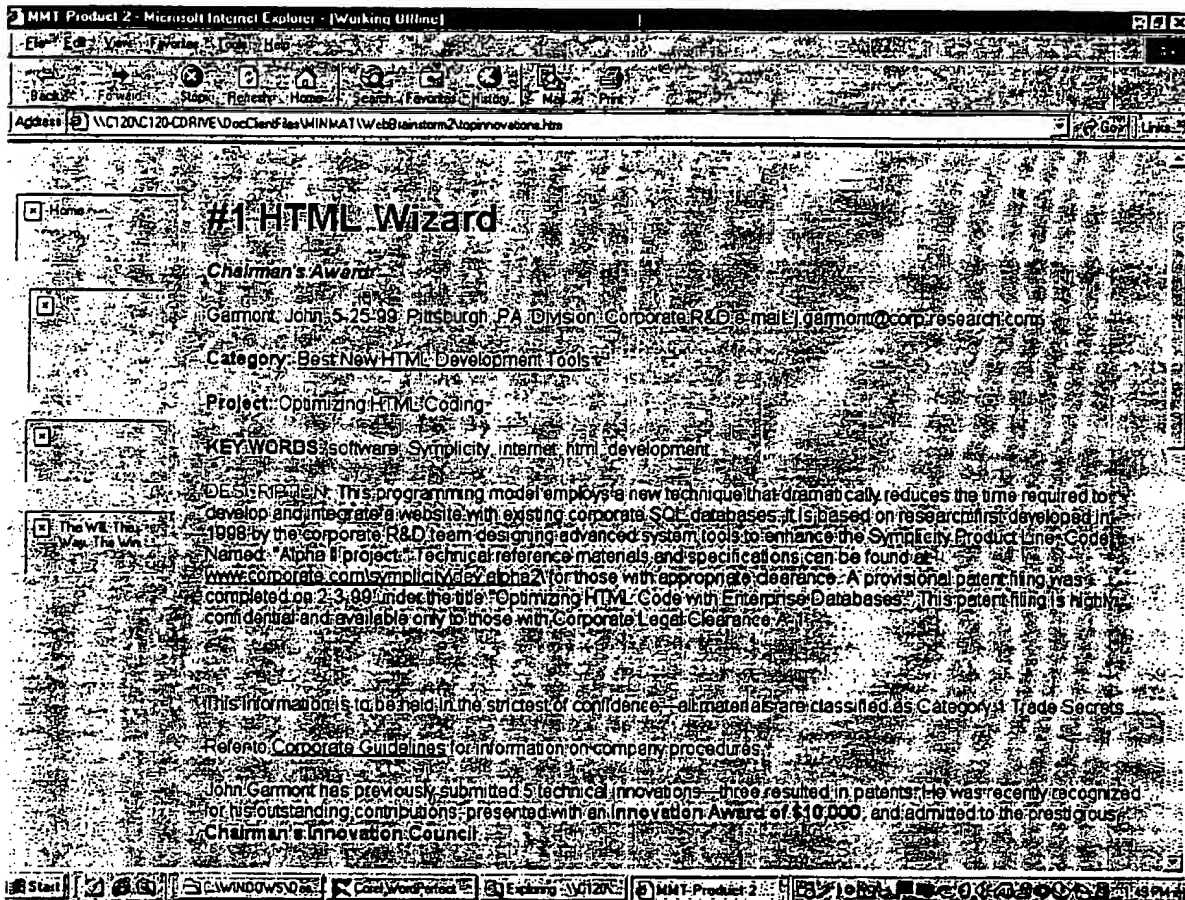 MMT Product 2 - Microsoft Internet Explorer - [Working Offline]
File Edit View Favorites Tools Help
Back Forward Stop Refresh Home Search Favorites History Mail Print
Address \\C120\C120-CDRIVE\DocClientFiles\MINMAT\WebBrainstorm2\topinnovations.htm Go Links
Home
#1 HTML Wizard
Chairman's Award
Garmont, John, 5-25-99 Pittsburgh, PA Division: Corporate R&D e-mail: j.garmont@corp.research.com
Category: Best New HTML Development Tools
Project: Optimizing HTML Coding
KEY WORDS: software, Symplicity, internet, html, development
DESCRIPTION: This programming model employs a new technique that dramatically reduces the time required to
develop and integrate a website with existing corporate SQL databases. It is based on research first developed in
1998 by the corporate R&D team designing advanced system tools to enhance the Symplicity Product Line- Code
Named: "Alpha II project." Technical reference materials and specifications can be found at
www.corporate.com\symplicity\dev.alpha2\ for those with appropriate clearance. A provisional patent filing was
completed on 2-3-99 under the title "Optimizing HTML Code with Enterprise Databases". This patent filing is highly
confidential and available only to those with Corporate Legal Clearance A-1.
The Will, The
Way, The Win
This information is to be held in the strictest of confidence—all materials are classified as Category 1 Trade Secrets
Refer to Corporate Guidelines for information on company procedures.
John Garmont has previously submitted 5 technical innovations—three resulted in patents. He was recently recognized
for his outstanding contributions, presented with an Innovation Award of $10,000, and admitted to the prestigious
Chairman's Innovation Council
Start Corel WordPerfect Exploring MMT Product 2